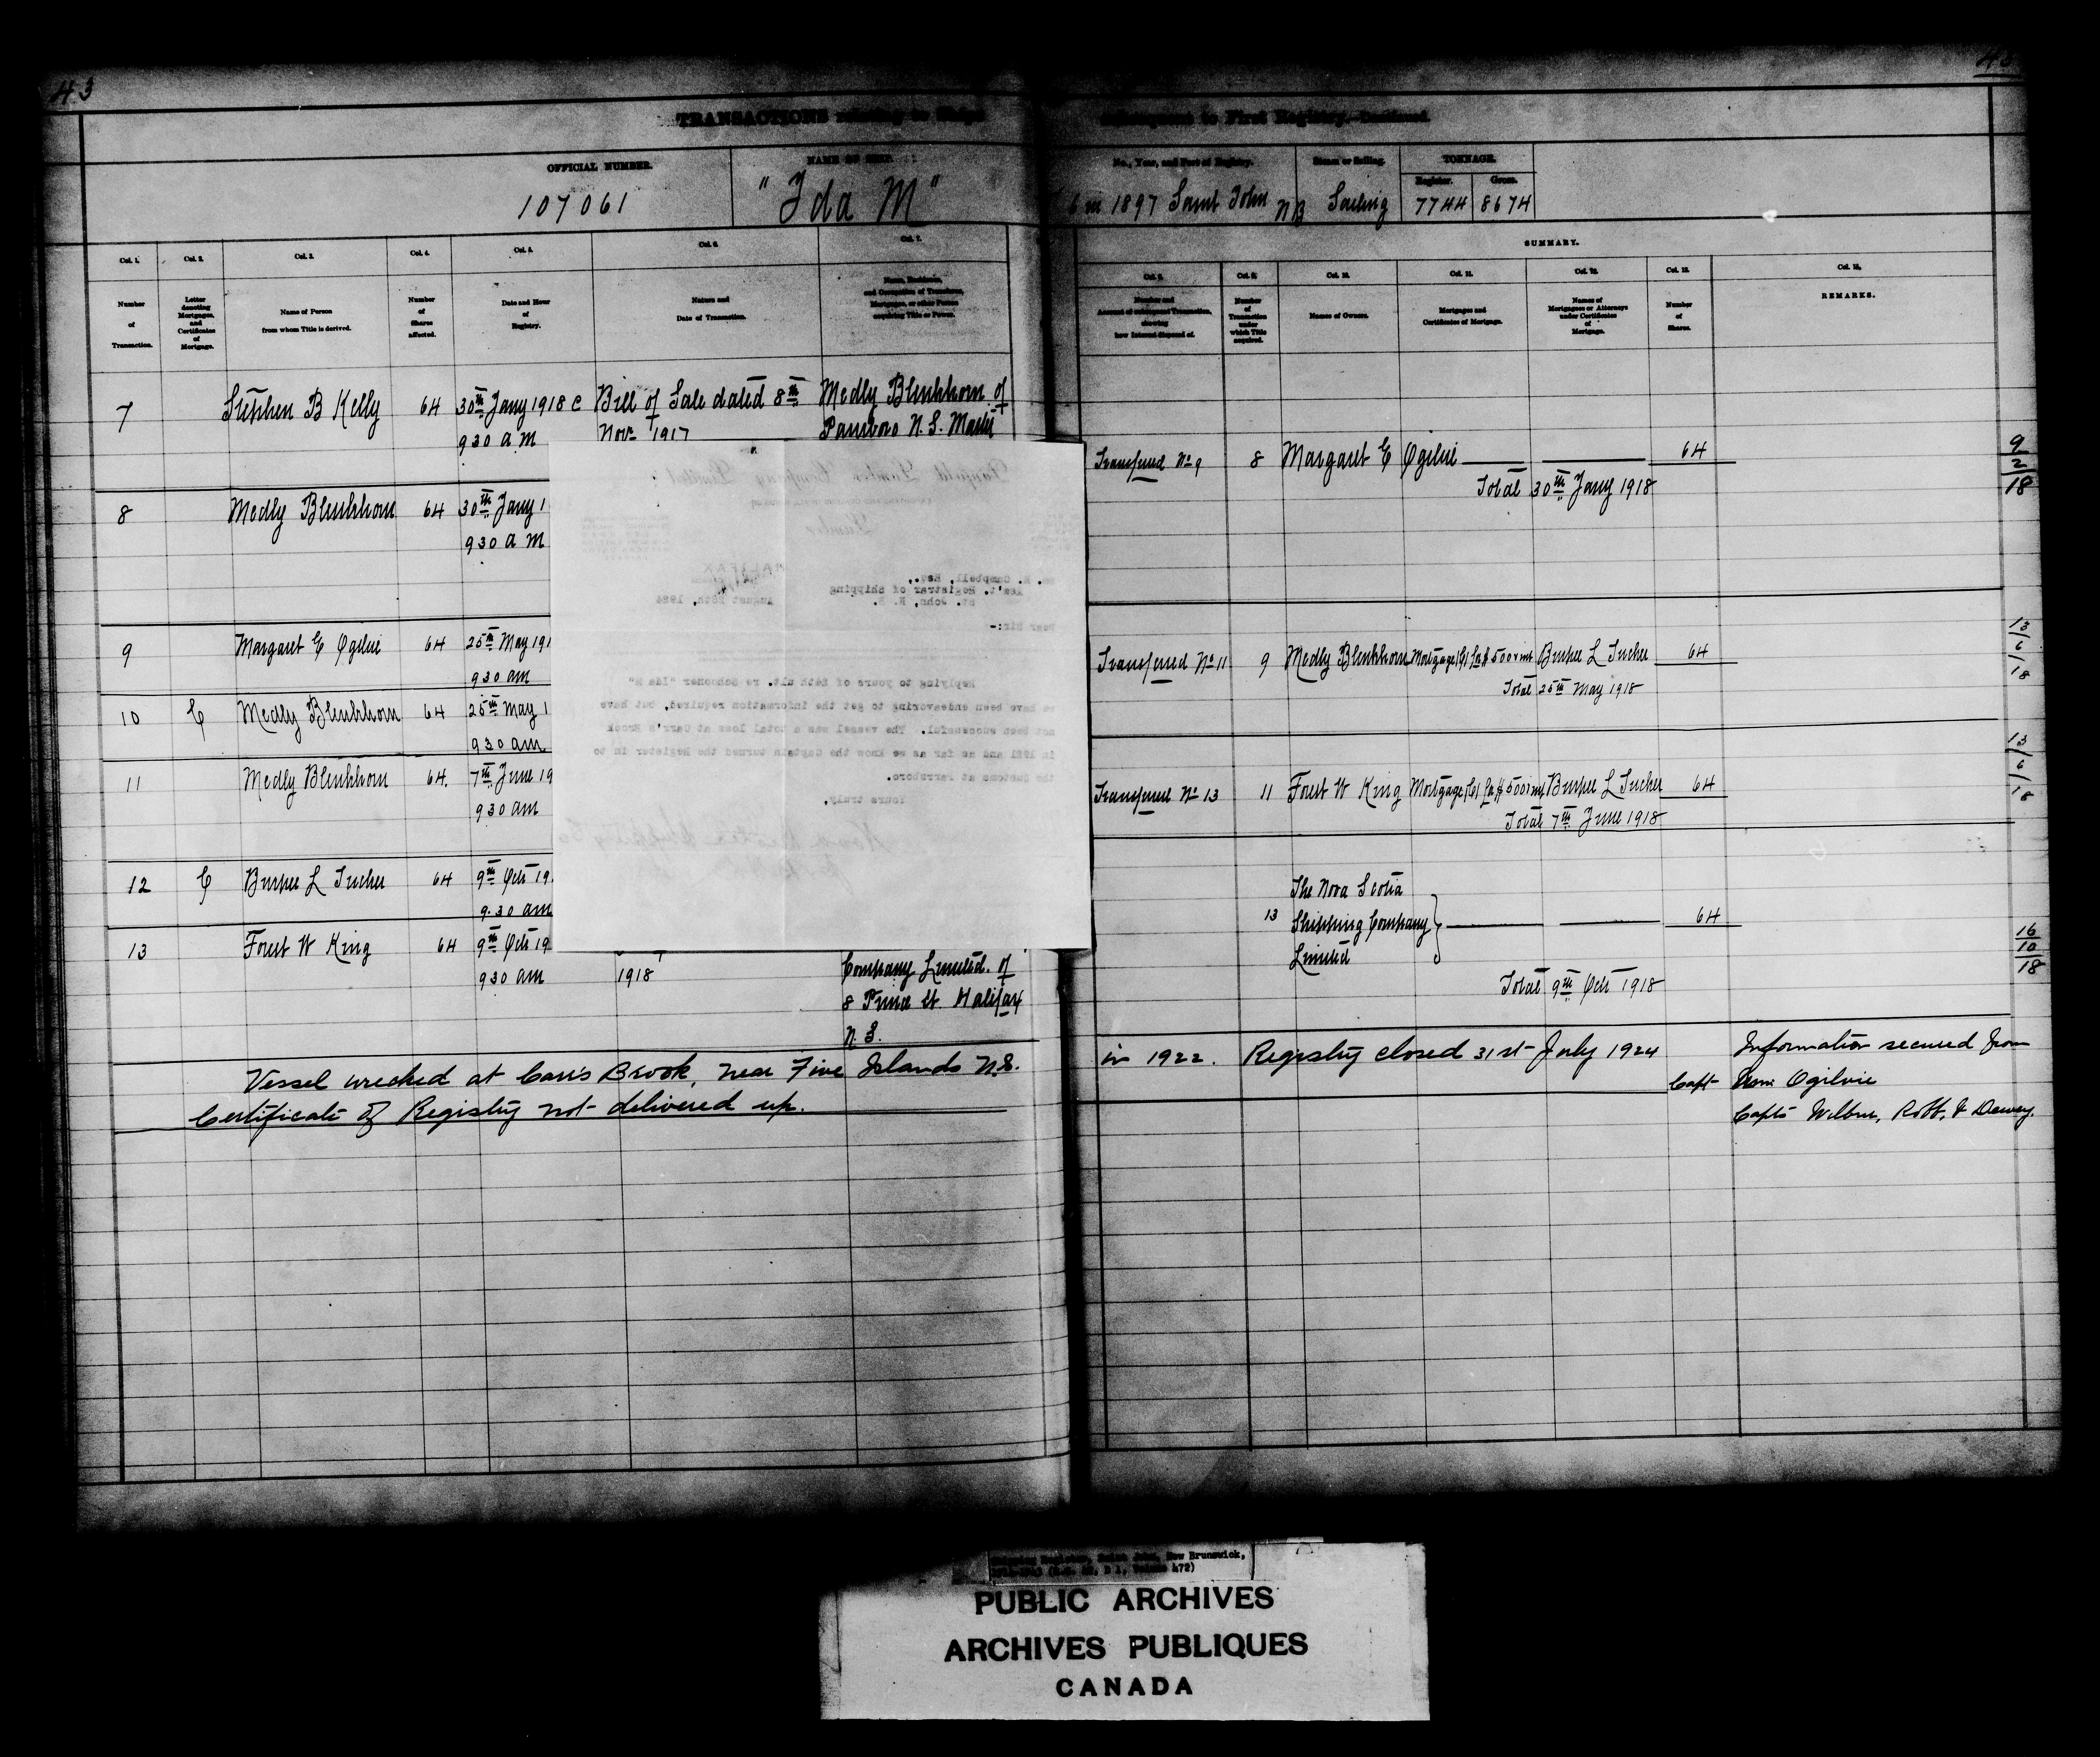 43
TRANSACTIONS relating to Ships
OFFICIAL NUMBER.
107061
NAME OF SHIP.
"Ida M"
Col. 1.
Col. 2.
Col. 3.
Col. 4.
Col. 5.
Col. 6.
Col. 7.
Number of Transaction.
Letter denoting Mortgages, and Certificates of Mortgage.
Name of Person from whom Title is derived.
Number of Shares affected.
Date and Hour of Registry.
Nature and Date of Transaction.
Name, Residence, and Occupation of Transferee, Mortgagee, or other Person acquiring Title or Power.
7 Stephen B Kelly 64 30th Jany 1918 Bill of Sale dated 8th Medly Blenkhorn of
930 a m Novr 1917 Parrsboro N.S. Master
8 Medly Blenkhorn 64 30th Jany 1
930 a m
9 Margaret E Ogilvie 64 25th May 191
930 am
10 C Medly Blenkhorn 64 25th May 1
930 am
11 Medly Blenkhorn 64. 7th June 19
930 am
12 C Burpee L Tucker 64 9th Octr 19
9.30 am
13 Forest W King 64 9th Octr 19
930 am 1918 Company Limited. of
8 Prince St Halifax
N.S.
Vessel wrecked at Carr's Brook, near Five Islands N.S.
Certificate of Registry not delivered up.
Lumber Company Limited
HALIFAX
Campbell, Esq.,
Ass't. Registrar of Shipping
St. John, N. B.
August 28th, 1924
Dear Sir:-
Replying to yours of 26th ult. re Schooner "Ida M"
we have been endeavoring to get the information required, but have
not been successful. The vessel was a total loss at Carr's Brook
in 1921 and as far as we know the Captain turned the Register in to
the Customs at Parrsboro.
Yours truly,
Subsequent to First Registry.—Continued.
No., Year, and Port of Registry.
6 in 1897 Saint John NB
Steam or Sailing.
Sailing
TONNAGE.
Register.
Gross.
7744
8674
SUMMARY.
Col. 8.
Col. 9.
Col. 10.
Col. 11.
Col. 12.
Col. 13.
Col. 14.
Number and Account of subsequent Transaction, showing how Interest disposed of.
Number of Transaction under which Title acquired.
Names of Owners.
Mortgages and Certificates of Mortgage.
Names of Mortgagees or Attorneys under Certificates of Mortgage.
Number of Shares.
REMARKS.
Transferred No 9 8 Margaret E Ogilvie 64
Total 30th Jany 1918
9
2
18
Transferred No 11 9 Medly Blenkhorn Mortgage (C) for $500 & int Burpee L Tucker 64
Total 25th May 1918
13
6
18
Transferred No 13 11 Forest W King Mortgage (C) for $500 int Burpee L Tucker 64
Total 7th June 1918
13
6
18
The Nova Scotia
13 Shipping Company 64
Limited
Total 9th Octr 1918
16
10
18
in 1922. Registry closed 31st July 1924 Information secured from
Capt Ogilvie
Capts Wilbur, Robt, & Dewey.
New Brunswick,
472)
PUBLIC ARCHIVES
ARCHIVES PUBLIQUES
CANADA